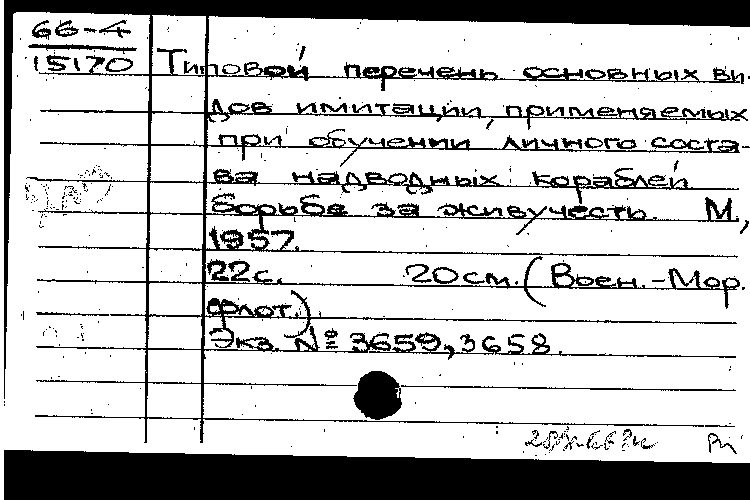 66-4
15170 Типовой перечень основных ви-
дов имитации, применяемых
при обучении личного соста-
ва надводных кораблей
борьбе за живучесть. М.,
1957.
22с. 20см. (Воен.-Мор.
флот.)
Экз. № 3659, 3658.